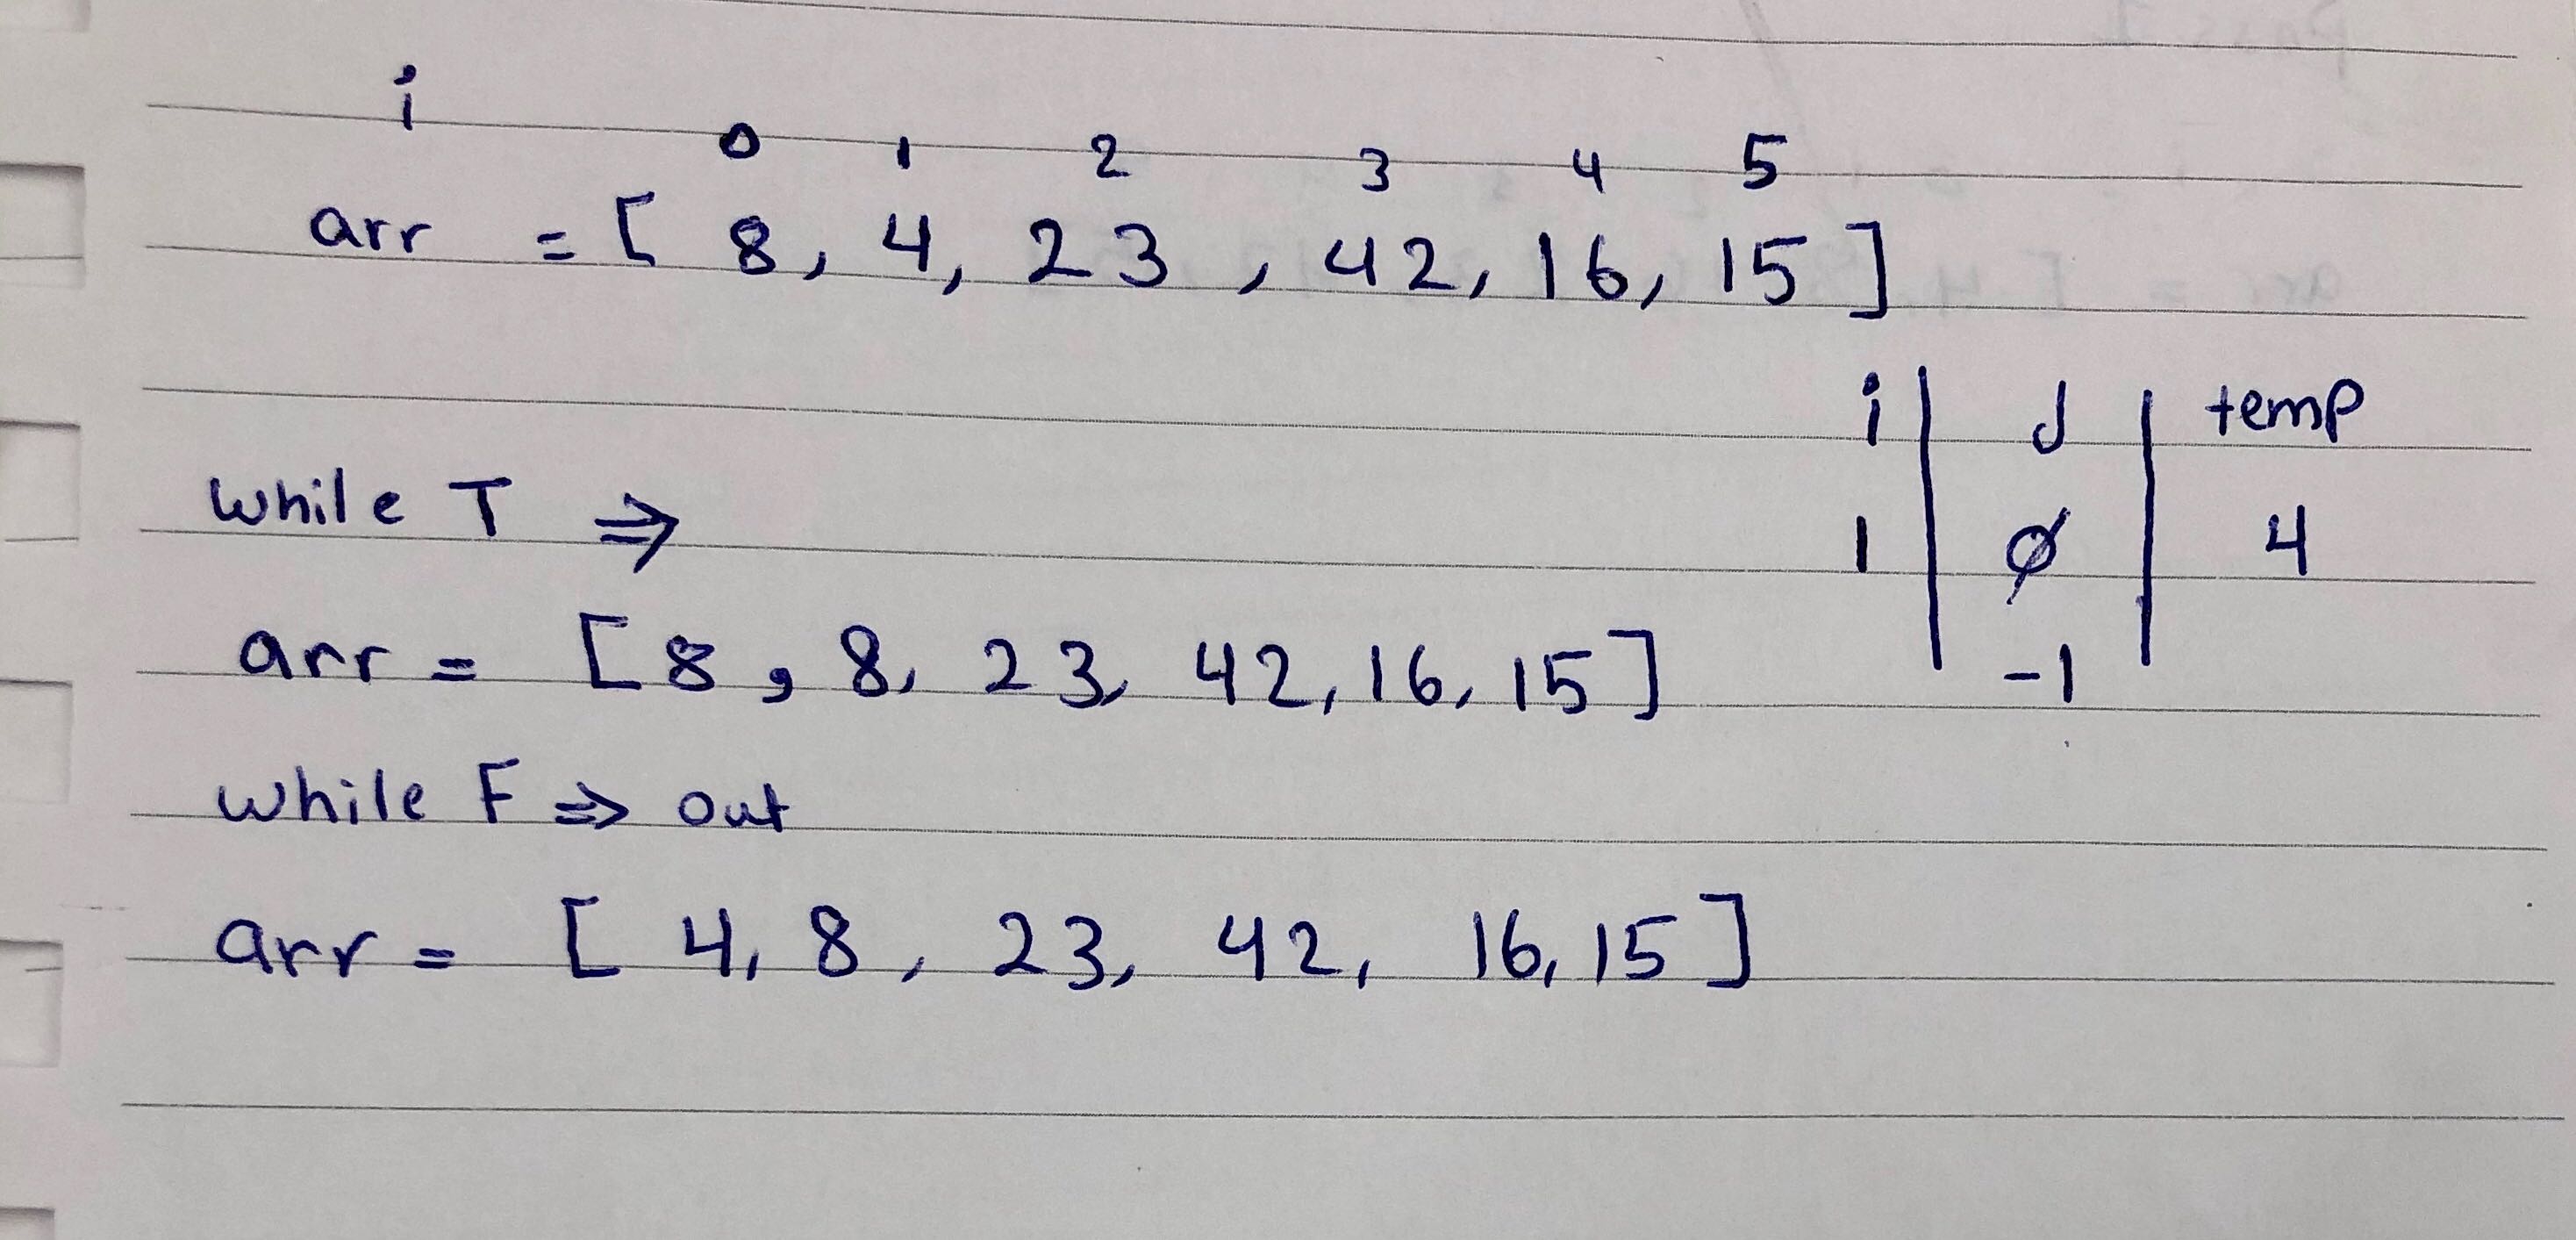 i 0 1 2 3 4 5
arr = [ 8, 4, 23, 42, 16, 15 ]
i | j | temp
while T ⇒ 1 | 0 | 4
arr = [ 8, 8, 23, 42, 16, 15 ] -1
while F ⇒ out
arr = [ 4, 8, 23, 42, 16, 15 ]